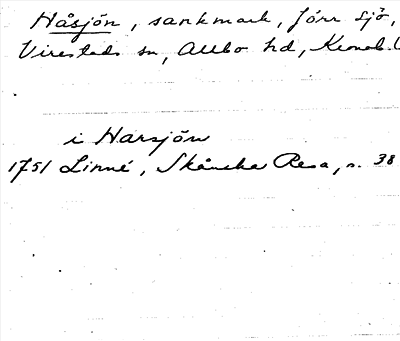 Håsjön, sankmark, förr sjö,
Virestads sn, Allbo hd, Kronob.
i Harsjön
1751 Linné, Skånska Resa, s. 38